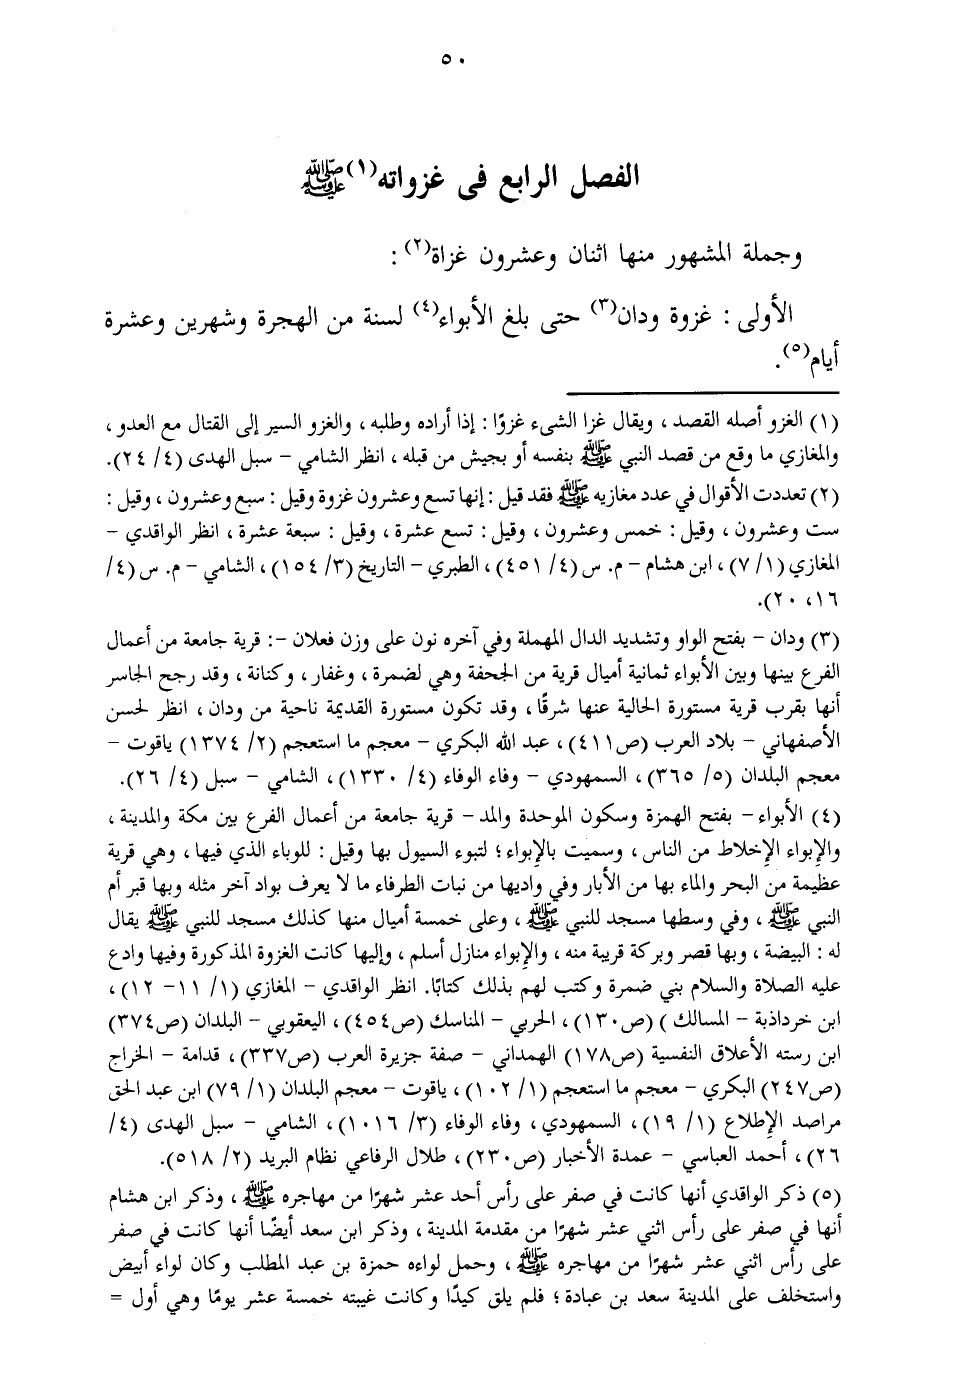 ٥٠
الفصل الرابع فى غزواته(١) ﷺ
وجملة المشهور منها اثنان وعشرون غزاة(٢) :
الأولى : غزوة ودان(٣) حتى بلغ الأبواء(٤) لسنة من الهجرة وشهرين وعشرة
أيام(٥).
(١) الغزو أصله القصد ، ويقال غزا الشىء غزوًا : إذا أراده وطلبه ، والغزو السير إلى القتال مع العدو ،
والمغازي ما وقع من قصد النبي ﷺ بنفسه أو بجيش من قبله ، انظر الشامي – سبل الهدى (٤/ ٢٤).
(٢) تعددت الأقوال في عدد مغازيه ﷺ فقد قيل : إنها تسع وعشرون غزوة وقيل : سبع وعشرون ، وقيل :
ست وعشرون ، وقيل : خمس وعشرون ، وقيل : تسع عشرة ، وقيل : سبعة عشرة ، انظر الواقدي –
المغازي (١/ ٧) ، ابن هشام – م. س (٤/ ٤٥١) ، الطبري – التاريخ (٣/ ١٥٤) ، الشامي – م. س (٤/
١٦، ٢٠).
(٣) ودان – بفتح الواو وتشديد الدال المهملة وفي آخره نون على وزن فعلان –: قرية جامعة من أعمال
الفرع بينها وبين الأبواء ثمانية أميال قرية من الجحفة وهي لضمرة ، وغفار ، وكنانة ، وقد رجح الجاسر
أنها بقرب قرية مستورة الحالية عنها شرقًا ، وقد تكون مستورة القديمة ناحية من ودان ، انظر لحسن
الأصفهاني – بلاد العرب (ص٤١١) ، عبد الله البكري – معجم ما استعجم (٢/ ١٣٧٤) ياقوت –
معجم البلدان (٥/ ٣٦٥) ، السمهودي – وفاء الوفاء (٤/ ١٣٣٠) ، الشامي – سبل (٤/ ٢٦).
(٤) الأبواء – بفتح الهمزة وسكون الموحدة والمد – قرية جامعة من أعمال الفرع بين مكة والمدينة ،
والإبواء الإخلاط من الناس ، وسميت بالإبواء ؛ لتبوء السيول بها وقيل : للوباء الذي فيها ، وهي قرية
عظيمة من البحر والماء بها من الأبار وفي واديها من نبات الطرفاء ما لا يعرف بواد آخر مثله وبها قبر أم
النبي ﷺ ، وفي وسطها مسجد للنبي ﷺ ، وعلى خمسة أميال منها كذلك مسجد للنبي ﷺ يقال
له : البيضة ، وبها قصر وبركة قريبة منه ، والإبواء منازل أسلم ، وإليها كانت الغزوة المذكورة وفيها وادع
عليه الصلاة والسلام بني ضمرة وكتب لهم بذلك كتابًا. انظر الواقدي – المغازي (١/ ١١– ١٢) ،
ابن خرداذبة – المسالك ) (ص١٣٠) ، الحربي – المناسك (ص٤٥٤) ، اليعقوبي – البلدان (ص٣٧٤)
ابن رسته الأعلاق النفسية (ص١٧٨) الهمداني – صفة جزيرة العرب (ص٣٣٧) ، قدامة – الخراج
(ص٢٤٧) البكري – معجم ما استعجم (١/ ١٠٢) ، ياقوت – معجم البلدان (١/ ٧٩) ابن عبد الحق
مراصد الإطلاع (١/ ١٩) ، السمهودي ، وفاء الوفاء (٣/ ١٠١٦) ، الشامي – سبل الهدى (٤/
٢٦) ، أحمد العباسي – عمدة الأخبار (ص٢٣٠) ، طلال الرفاعي نظام البريد (٢/ ٥١٨).
(٥) ذكر الواقدي أنها كانت في صفر على رأس أحد عشر شهرًا من مهاجره ﷺ ، وذكر ابن هشام
أنها في صفر على رأس اثني عشر شهرًا من مقدمة المدينة ، وذكر ابن سعد أيضًا أنها كانت في صفر
على رأس اثني عشر شهرًا من مهاجره ﷺ ، وحمل لواءه حمزة بن عبد المطلب وكان لواء أبيض
واستخلف على المدينة سعد بن عبادة ؛ فلم يلق كيدًا وكانت غيبته خمسة عشر يومًا وهي أول =